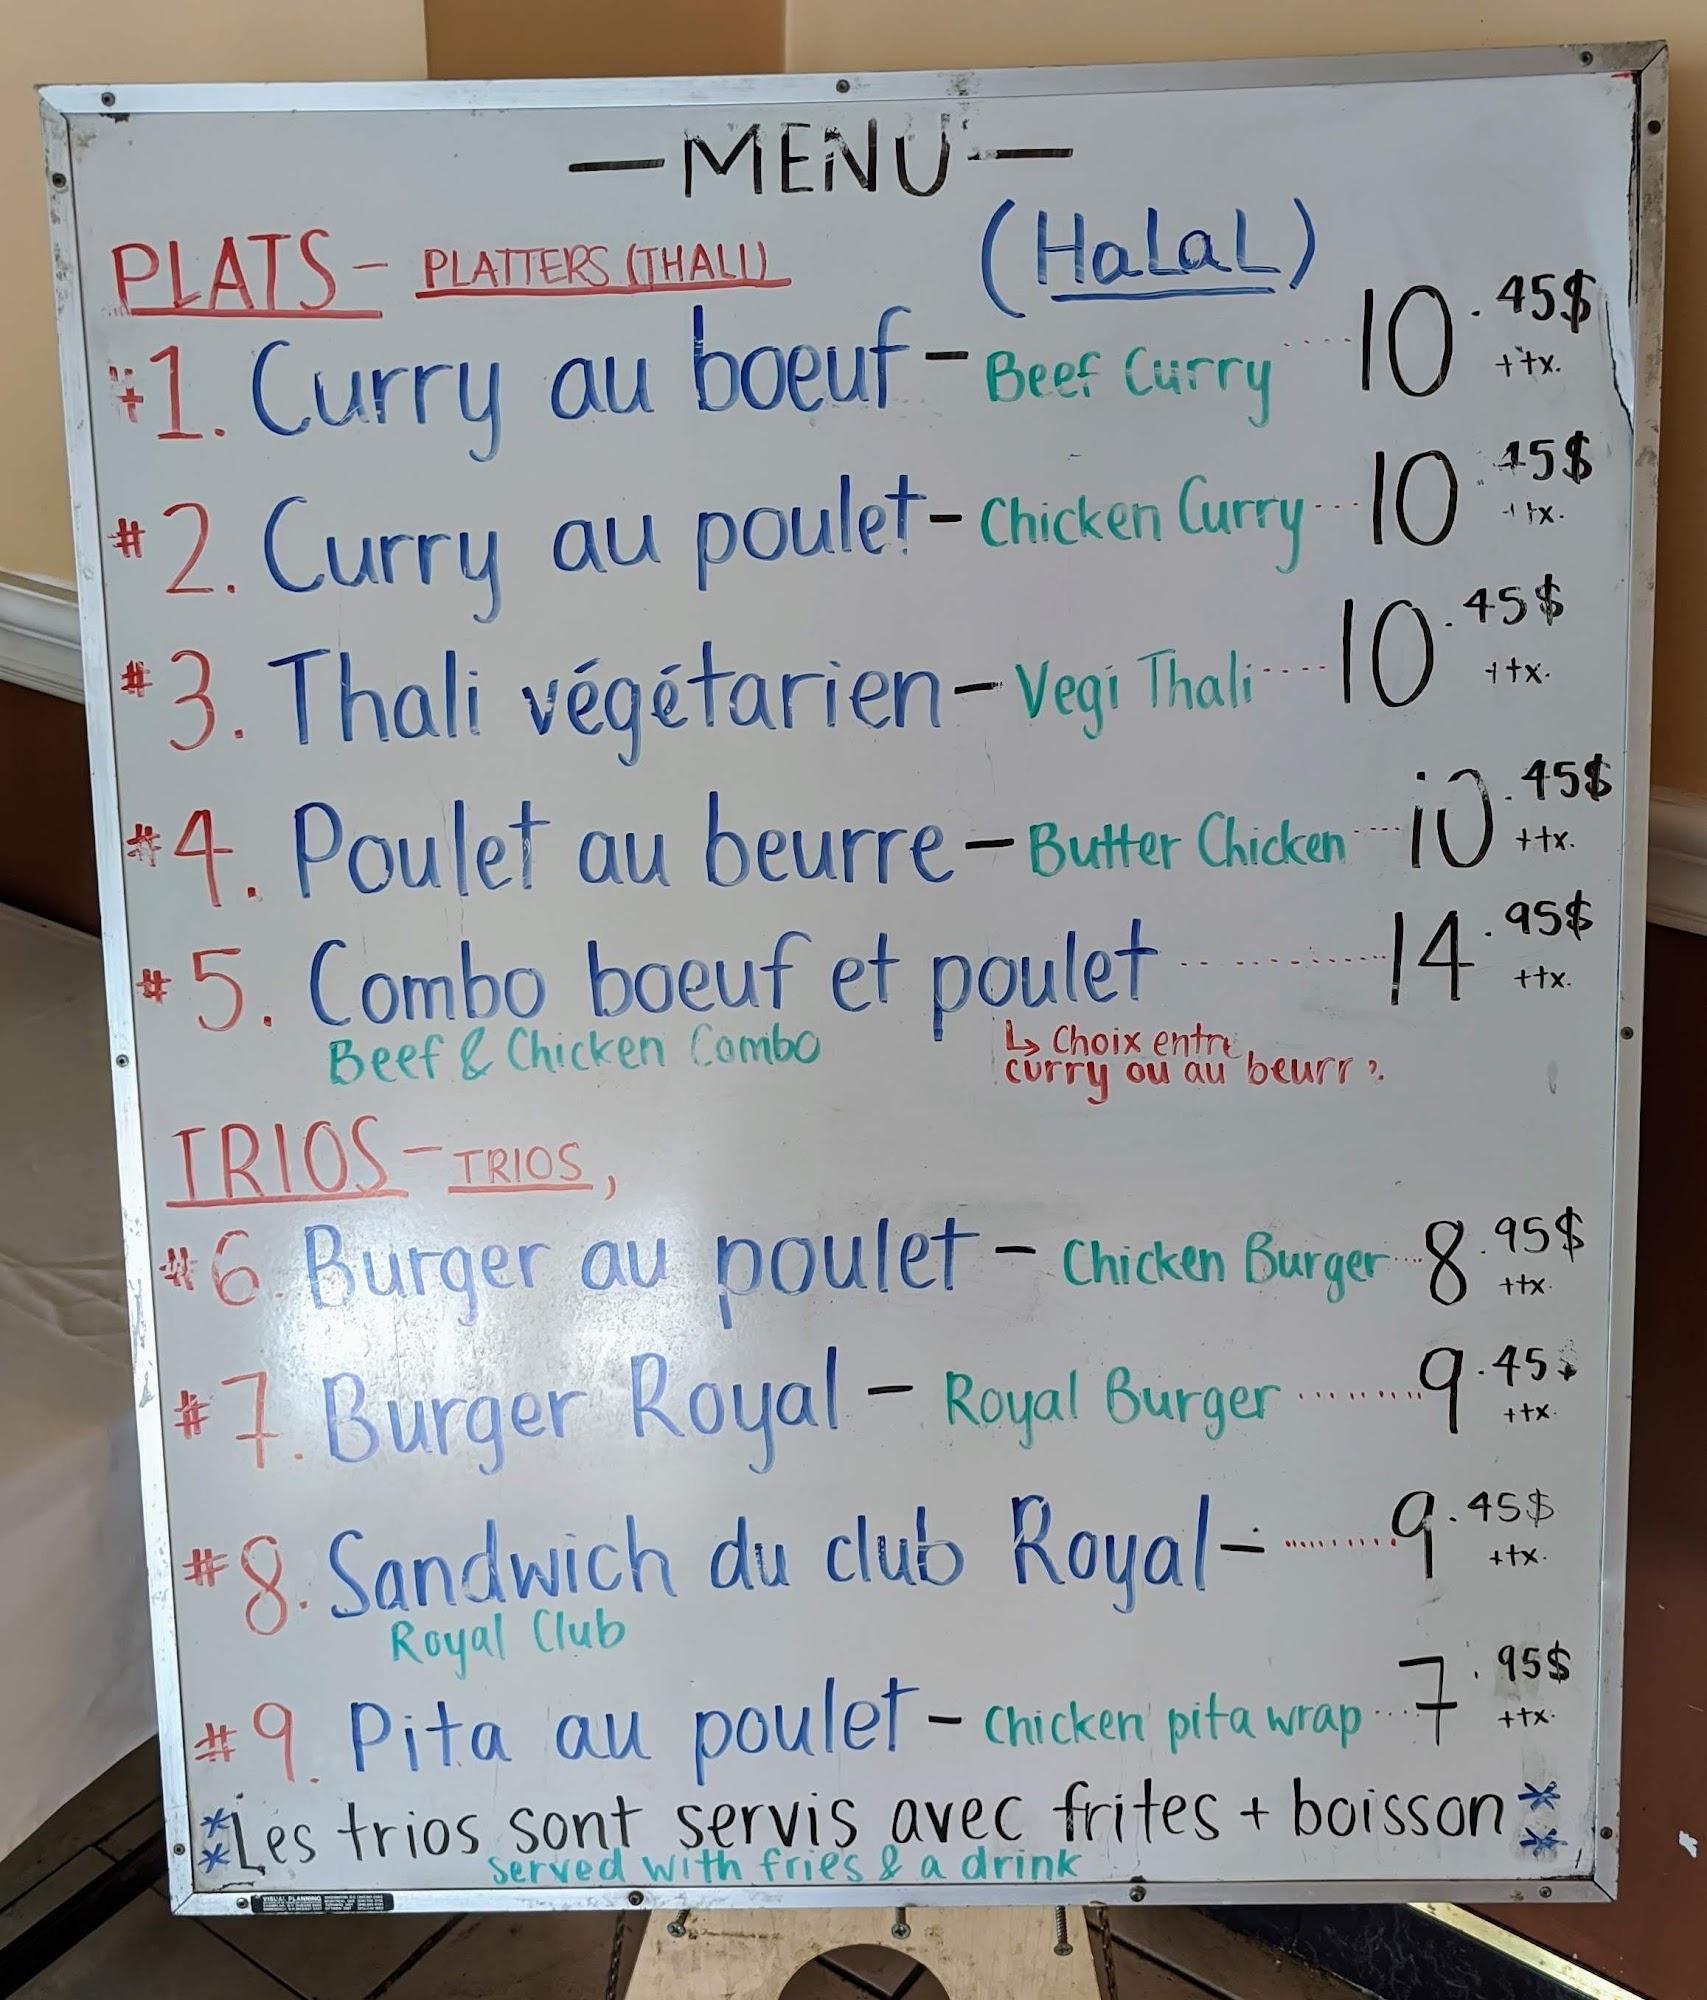 — MENU —
PLATS - PLATTERS (THALI) (HALAL)
#1. Curry au boeuf - Beef Curry ..... 10.45$ + tx.
#2. Curry au poulet - Chicken Curry ... 10.45$ + tx.
#3. Thali végétarien - Vegi Thali ..... 10.45$ + tx.
#4. Poulet au beurre - Butter Chicken .... 10.45$ + tx.
#5. Combo boeuf et poulet .......... 14.95$ + tx.
Beef & Chicken Combo
↳ Choix entre
curry ou au beurre
TRIOS - TRIOS,
#6. Burger au poulet - Chicken Burger ... 8.95$ + tx.
#7. Burger Royal - Royal Burger ........ 9.45$ + tx.
#8. Sandwich du club Royal - .......... 9.45$ + tx.
Royal Club
#9. Pita au poulet - Chicken pita wrap .... 7.95$ + tx.
**Les trios sont servis avec frites + boisson**
served with fries & a drink
VISUAL PLANNING